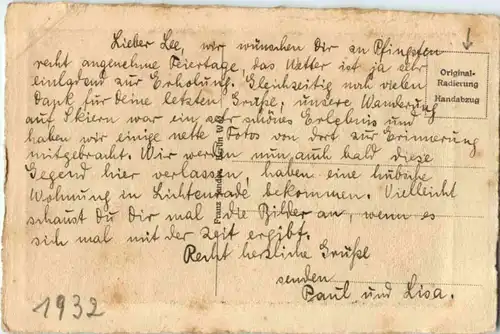 Lieber Leo, wir wünschen Dir an Pfingsten
recht angenehme Feiertage, das Wetter ist ja sehr
einladend zur Erholung. Gleichzeitig noch vielen
Dank für Deine letzten Grüße, unsere Wanderung
auf Skiern war ein sehr schönes Erlebnis und
haben wir einige nette Fotos von dort zur Erinnerung
mitgebracht. Wir werden nun auch bald diese
Gegend hier verlassen, haben eine hübsche
Wohnung in Lichtenrade bekommen. Vielleicht
schaust Du Dir mal die Bilder an, wenn es
sich mal mit der Zeit ergibt.
Recht herzliche Grüße
senden
Paul und Lisa.
1932
Original-
Radierung
Handabzug
Franz Berlin W